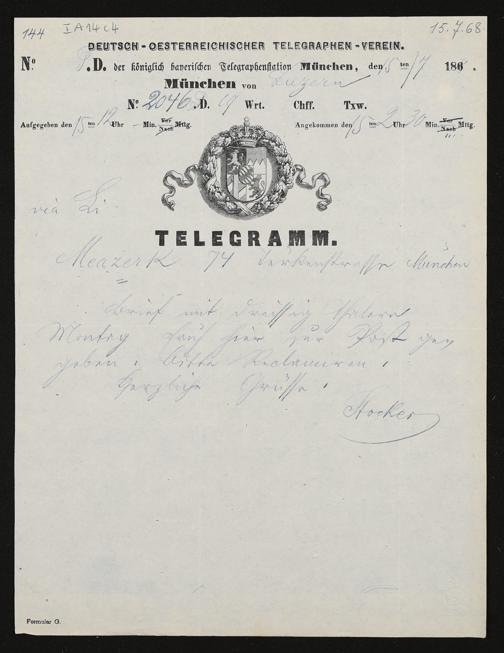 144 I A 14c4 15.7.68
DEUTSCH-OESTERREICHISCHER TELEGRAPHEN-VEREIN.
Nº .D. der königlich bayerischen Telegraphenstation München, den 15 ten /7 186
München von Luzern
Nº 2046 .D. 19 Wrt. Chff. Txw.
Aufgegeben den 15 ten 12 Uhr - Min. Vor Nach Mttg. Angekommen den 15 ten 2 Uhr 30 Min. Vor Nach Mttg.
via Li
TELEGRAMM.
Meazerk 74 Türkenstrasse München
Brief mit dreissig Thalern
Montag früh hier zur Post ge
geben. bitte Reclamiren.
Herzliche Grüsse.
Stocker
Formular G.